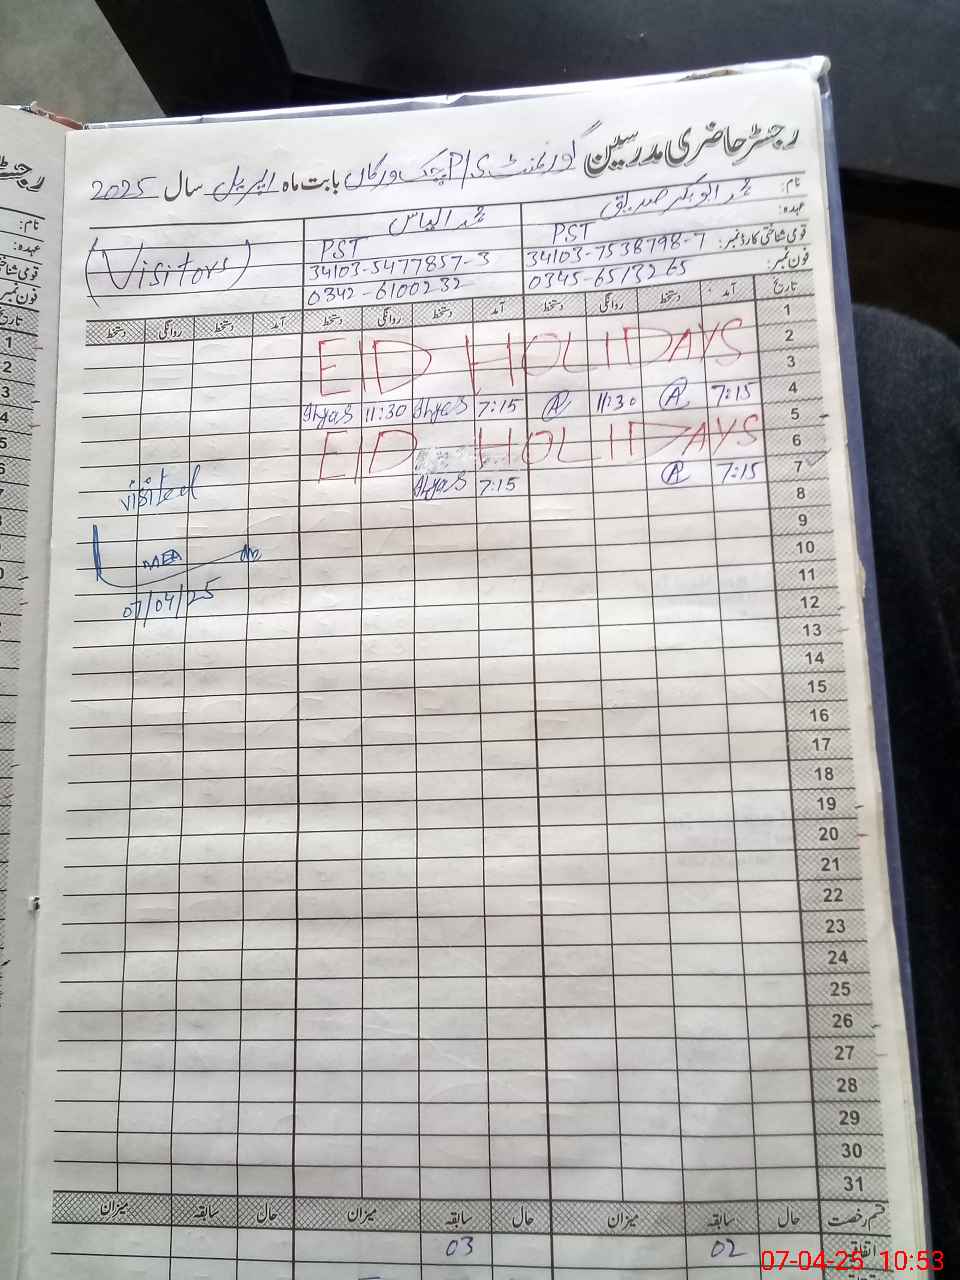 رجسٹر حاضری مدرسین گورنمنٹ P/S چک ورکاں بابت ماہ اپریل سال 2025
نام: محمد ابوبکر صدیق محمد الیاس (Visitors)
عہدہ: PST PST
قومی شناختی کارڈ نمبر: 34103-7538798-7 34103-5477857-3
فون نمبر: 0345-6513265 0342-6100232
تاریخ آمد دستخط روانگی دستخط آمد دستخط روانگی دستخط آمد دستخط روانگی دستخط
1
2 EID HOLIDAYS
3
4 7:15 A 11:30 A 7:15 Ilyas 11:30 Ilyas
5
6 EID HOLIDAYS
7 7:15 A 7:15 Ilyas visited
8
9 MEA
10
11 07/04/25
12
13
14
15
16
17
18
19
20
21
22
23
24
25
26
27
28
29
30
31
قسم رخصت حال سابقہ میزان حال سابقہ میزان حال سابقہ میزان
اتفاقیہ 02 03
07-04-25 10:53